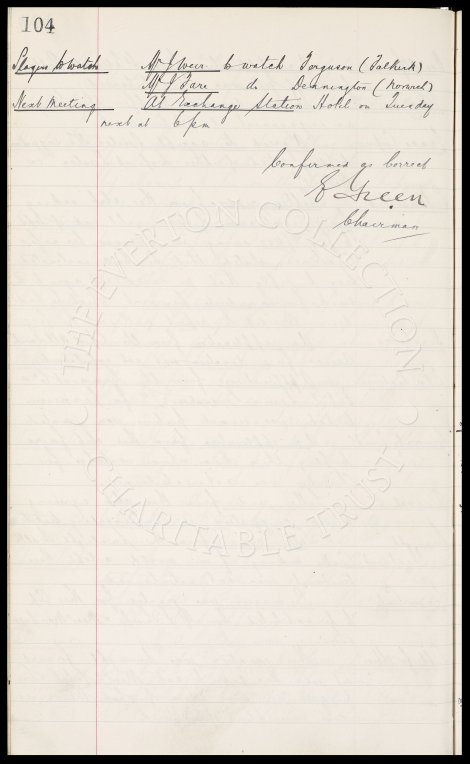 104
Players to watch Mr J Weir to watch Ferguson (Falkirk)
Mr J Fare do Dennington (Norwich)
Next Meeting At Exchange Station Hotel on Tuesday
next at 6 pm
Confirmed as Correct
E Green
Chairman
THE EVERTON COLLECTION
CHARITABLE TRUST